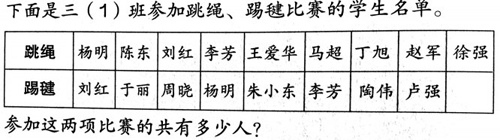 下面是三（1）班参加跳绳、踢毽比赛的学生名单。
跳绳 杨明 陈东 刘红 李芳 王爱华 马超 丁旭 赵军 徐强
踢毽 刘红 于丽 周晓 杨明 朱小东 李芳 陶伟 卢强
参加这两项比赛的共有多少人?